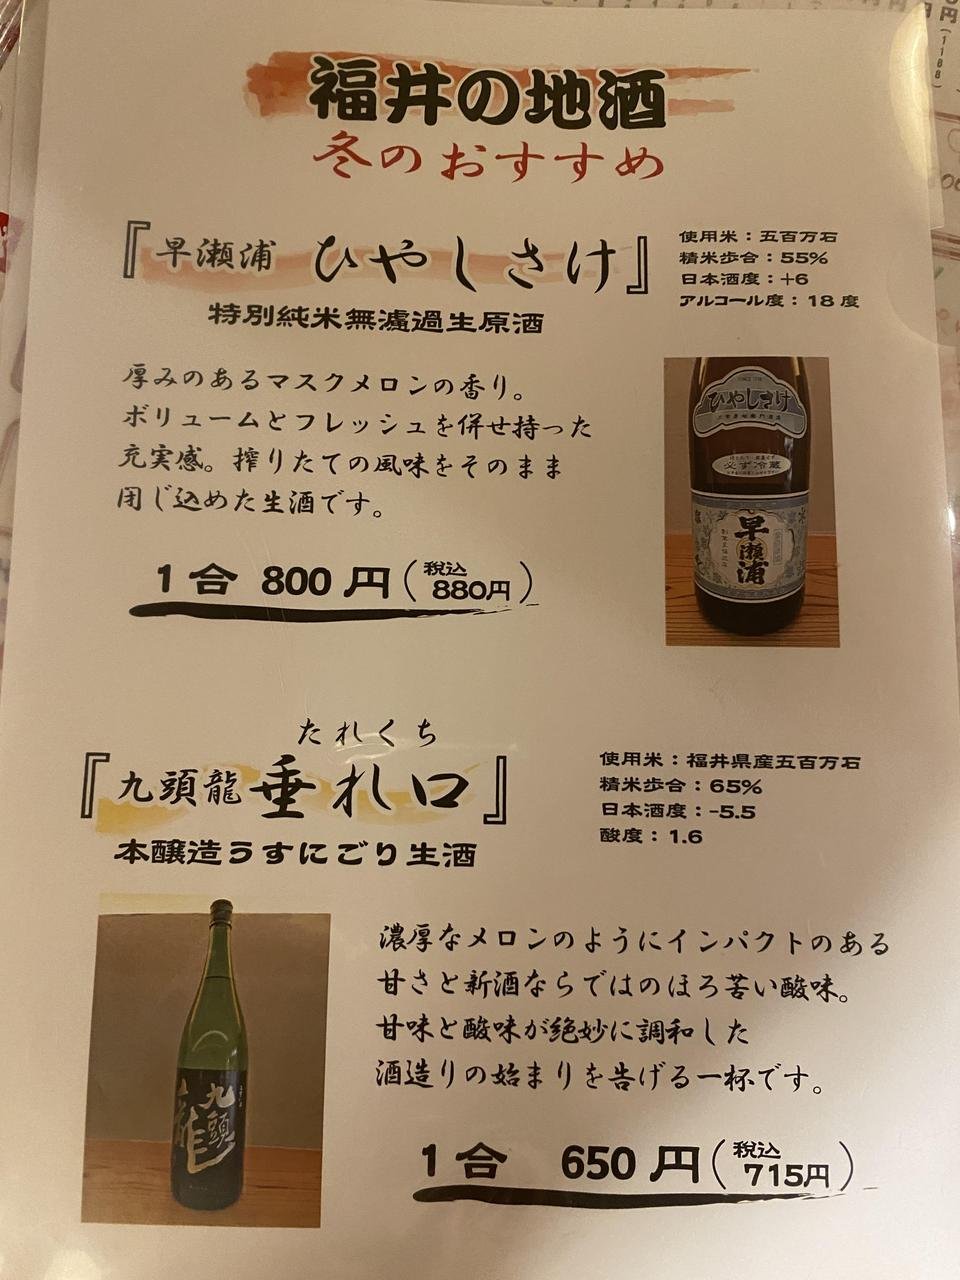 福井の地酒
冬のおすすめ
『早瀬浦 ひやしさけ』
特別純米無濾過生原酒
使用米：五百万石
精米歩合：55%
日本酒度：+6
アルコール度：18度
厚みのあるマスクメロンの香り。
ボリュームとフレッシュを併せ持った
充実感。搾りたての風味をそのまま
閉じ込めた生酒です。
1合 800円（税込880円）
ひやしさけ
必ず冷蔵
早瀬浦
たれくち
『九頭龍 垂れ口』
本醸造うすにごり生酒
使用米：福井県産五百万石
精米歩合：65%
日本酒度：-5.5
酸度：1.6
濃厚なメロンのようにインパクトのある
甘さと新酒ならではのほろ苦い酸味。
甘味と酸味が絶妙に調和した
酒造りの始まりを告げる一杯です。
1合 650円（税込715円）
九頭龍